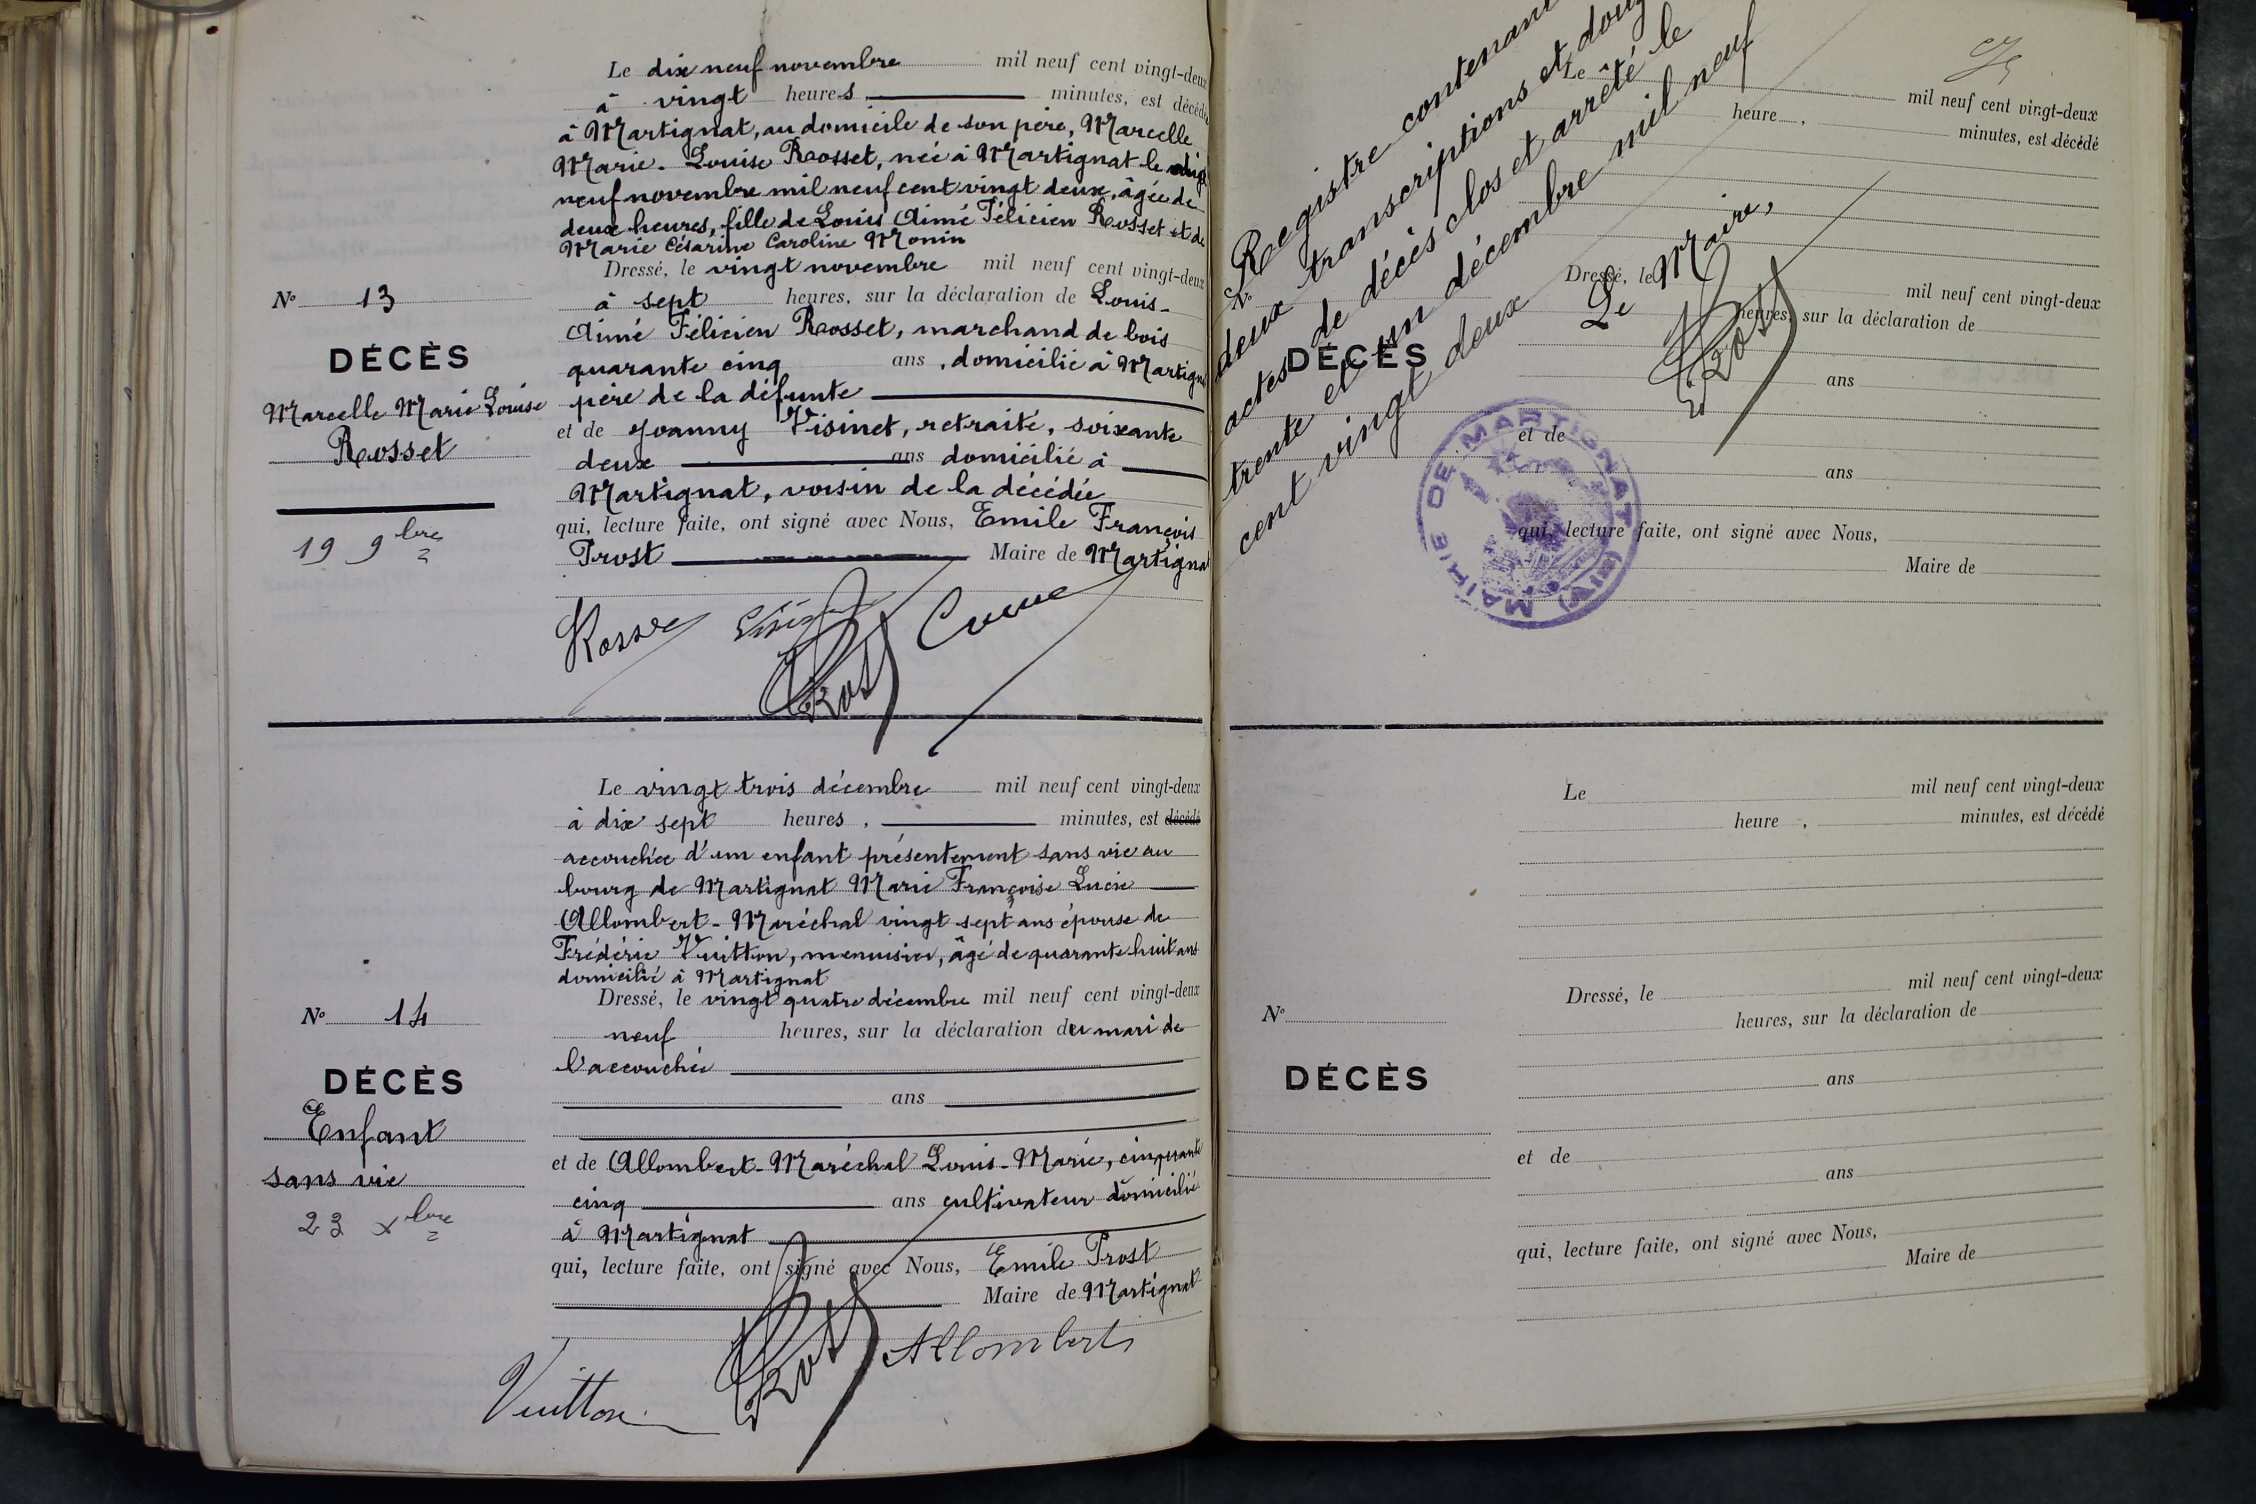 Le dix neuf novembre mil neuf cent vingt-deux
à vingt heures minutes, est décédée
à Martignat, au domicile de son père, Marcelle
Marie-Louise Rosset, née à Martignat le
neuf novembre mil neuf cent vingt deux, âgée de
deux heures, fille de Louis Aimé Félicien Rosset et de
Marie Césarine Caroline Monin
Dressé, le vingt novembre mil neuf cent vingt-deux
à sept heures, sur la déclaration de Louis-
Aimé Félicien Rosset, marchand de bois
quarante cinq ans, domicilié à Martigna
père de la défunte
et de Joanny Visinet, retraité, soixante
deux ans domicilié à
Martignat, voisin de la décédée
qui, lecture faite, ont signé avec Nous, Emile François
Prost Maire de Martigna
N° 13
DÉCÈS
Marcelle Marie Louise
Rosset
19 9bre
Prost
Le vingt trois décembre mil neuf cent vingt-deux
à dix sept heures, minutes, est décédé
accouchée d'un enfant présentement sans vie au
bourg de Martignat Marie Françoise Lucie
Allombert-Maréchal vingt sept ans épouse de
Frédéric Vuitton, menuisier, âgé de quarante huit ans
domicilié à Martignat
Dressé, le vingt quatre décembre mil neuf cent vingt-deux
neuf heures, sur la déclaration du mari de
l'accouchée
ans
et de Allombert-Maréchal Louis-Marie, cinquante
cinq ans cultivateur domicilié
à Martignat
qui, lecture faite, ont signé avec Nous, Emile Prost
Maire de Martignat
N° 14
DÉCÈS
Enfant
sans vie
23 Xbre
Vuitton Prost Allombert
Registre contenant
deux transcriptions et douze
actes de décès clos et arrêté le
trente et un décembre mil neuf
cent vingt deux
Le Maire,
Prost
MAIRIE DE MARTIGNAT (AIN)
Le mil neuf cent vingt-deux
heure, minutes, est décédé
Dressé, le mil neuf cent vingt-deux
heures, sur la déclaration de
ans
et de
ans
qui, lecture faite, ont signé avec Nous,
Maire de
N°
DÉCÈS
Le mil neuf cent vingt-deux
heure, minutes, est décédé
Dressé, le mil neuf cent vingt-deux
heures, sur la déclaration de
ans
et de
ans
qui, lecture faite, ont signé avec Nous,
Maire de
N°
DÉCÈS